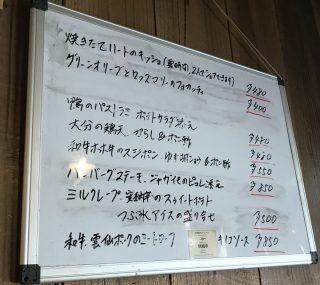 焼きたてハートのキッシュ(要時間、2人でシェアできます) ¥480
グリーンオリーブとローズマリーのフォカッチャ ¥400
鴨のパストラミ ポテトサラダ添え ¥480
大分の鶏天 からし&ポン酢
和牛ホホ牛のスジポン ゆずポン &ポン酢
ハンバーグステーキ、ジャガイモのピュレ添え ¥850
ミルクレープ、安納芋のスウィートポテト
つぶ氷アイスの盛り合せ ¥500
和牛、雲仙ポークのミートローフ ソース ¥850